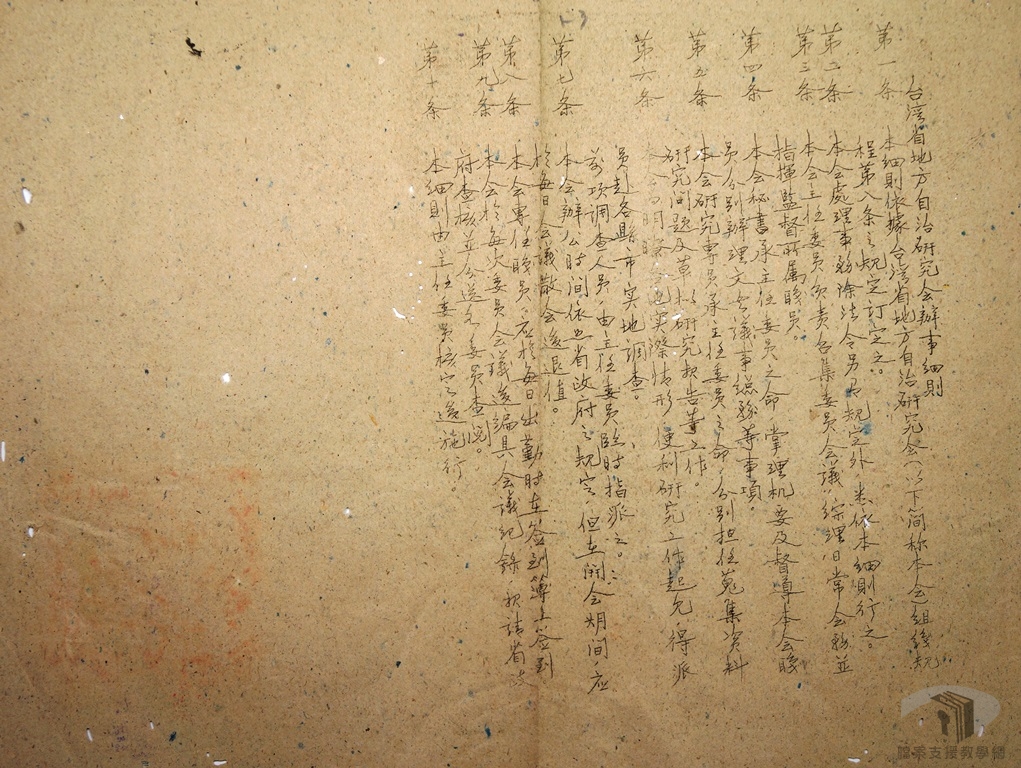 台湾省地方自治研究会辦事細則
第一条 本細則依據台湾省地方自治研究会(以下简称本会)組織規
程第八条之規定訂定之。
第二条 本会處理事務除法令另有規定外 悉依本細則行之。
第三条 本会主任委員負責召集委員会議 綜理日常会務並
指揮監督所属職員。
第四条 本会秘書承主任委員之命 掌理机要及督導本会職
員分別辦理文書議事總務等事項。
第五条 本会研究專員承主任委員之命 分別担任蒐集資料
研究問題及草拟研究报告書工作。
第六条 本会为明瞭各地实際情形 便利研究工作起見 得派
員赴各縣市实地調查。
前項調查人員 由主任委員臨时指派之。
第七条 本会辦公时间依照省政府之規定 但在開会期间 应
於每日会議散会後退值。
第八条 本会專任職員 应於每日出勤时在签到簿上签到
第九条 本会於每次委員会議後編具会議纪錄 报請省政
府查核並分送各委員查閱。
第十条 本細則由主任委員核定後施行。
檔案支援教學網